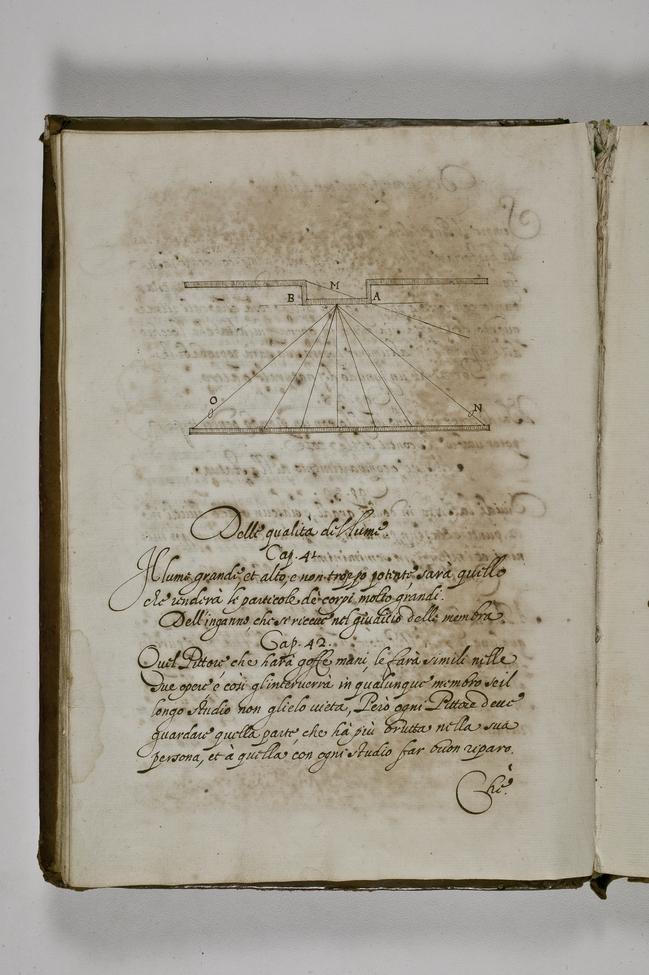 M
B A
O N
Delle qualità del lume.
Cap. 41.
Il lume grande, et alto, e non troppo potente sarà quello
che renderà le particole de corpi molto grandi.
Dell'inganno, che si riceve nel giuditio delle membra.
Cap. 42.
Quel Pittore che harà goffe mani, le farà simili nelle
sue opere é così gl'interverrà in qualunque membro se il
longo studio non glielo vieta, Però ogni Pittore deve
guardare quella parte, che hà più brutta nella sua
persona, et à quella con ogni studio far buon riparo.
Che